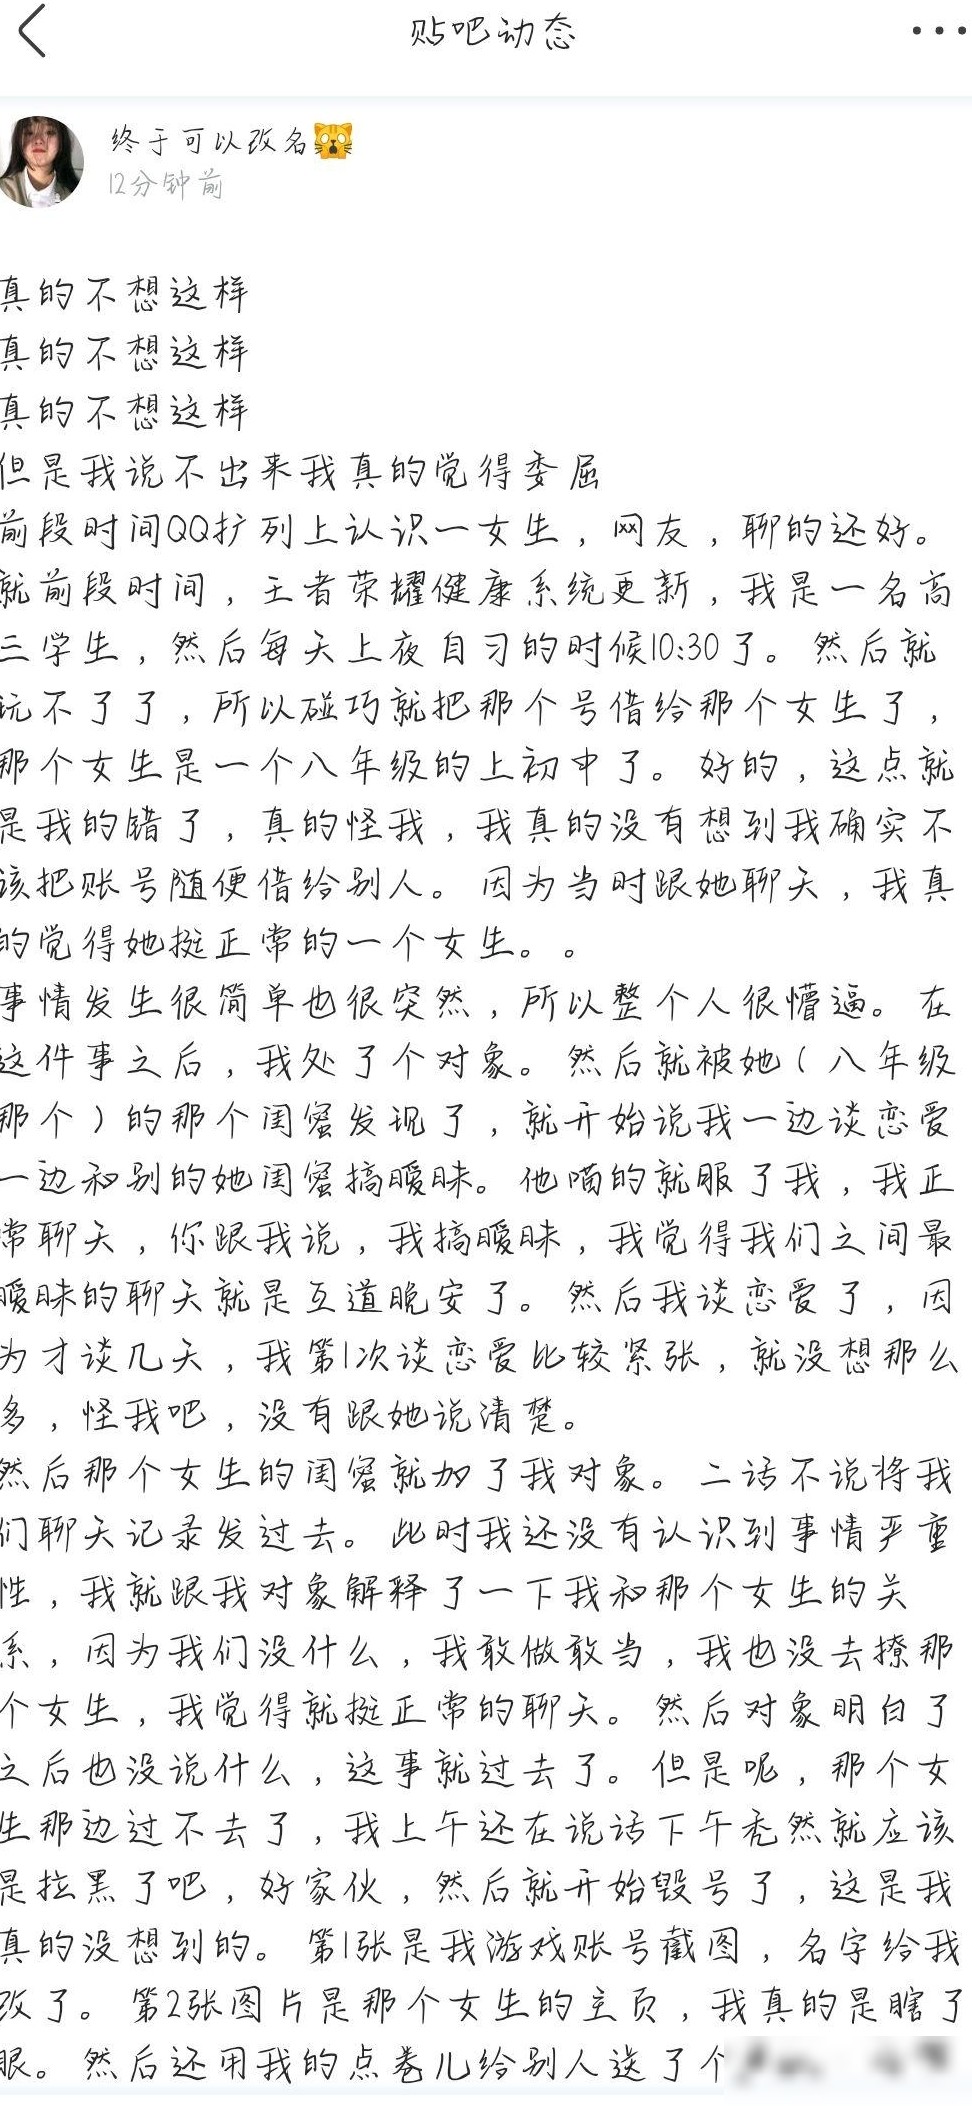 贴吧动态
终于可以改名
12分钟前
真的不想这样
真的不想这样
真的不想这样
但是我说不出来我真的觉得委屈
前段时间QQ扩列上认识一女生，网友，聊的还好。
就前段时间，王者荣耀健康系统更新，我是一名高
三学生，然后每天上夜自习的时候10:30了。然后就
玩不了了，所以碰巧就把那个号借给那个女生了，
那个女生是一个八年级的上初中了。好的，这点就
是我的错了，真的怪我，我真的没有想到我确实不
该把账号随便借给别人。因为当时跟她聊天，我真
的觉得她挺正常的一个女生。。
事情发生很简单也很突然，所以整个人很懵逼。在
这件事之后，我处了个对象。然后就被她（八年级
那个）的那个闺蜜发现了，就开始说我一边谈恋爱
一边和别的她闺蜜搞暧昧。他喵的就服了我，我正
常聊天，你跟我说，我搞暧昧，我觉得我们之间最
暧昧的聊天就是互道晚安了。然后我谈恋爱了，因
为才谈几天，我第1次谈恋爱比较紧张，就没想那么
多，怪我吧，没有跟她说清楚。
然后那个女生的闺蜜就加了我对象。二话不说将我
们聊天记录发过去。此时我还没有认识到事情严重
性，我就跟我对象解释了一下我和那个女生的关
系，因为我们没什么，我敢做敢当，我也没去撩那
个女生，我觉得就挺正常的聊天。然后对象明白了
之后也没说什么，这事就过去了。但是呢，那个女
生那边过不去了，我上午还在说话下午秃然就应该
是拉黑了吧，好家伙，然后就开始毁号了，这是我
真的没想到的。第1张是我游戏账号截图，名字给我
改了。第2张图片是那个女生的主页，我真的是瞎了
眼。然后还用我的点卷儿给别人送了个